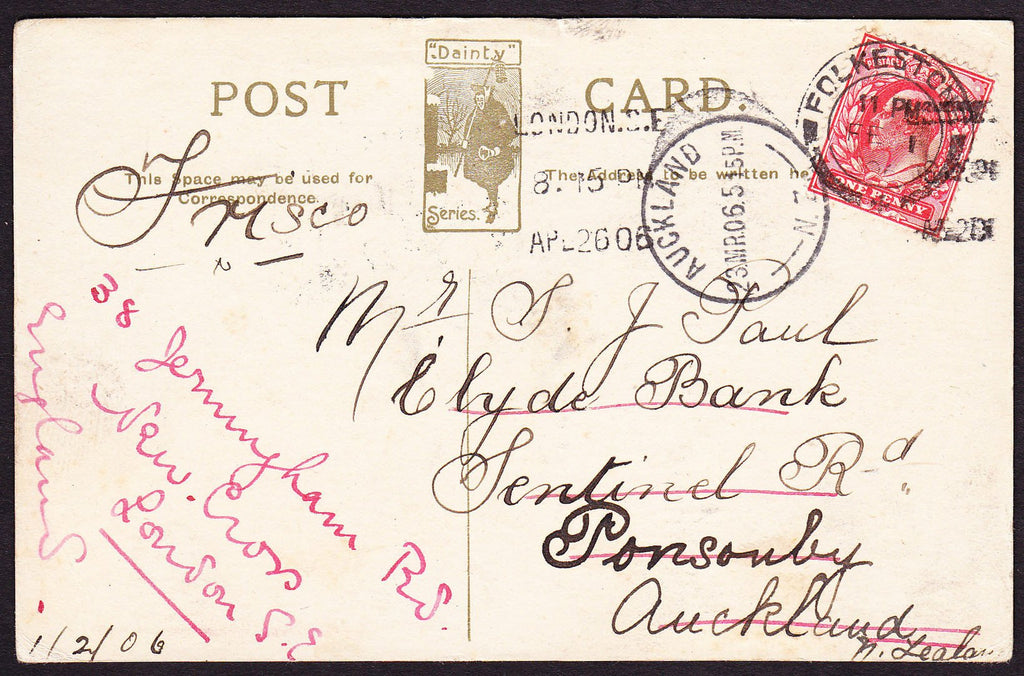 POST CARD.
"Dainty"
Series.
This Space may be used for
Correspondence.
The Address to be written he
LONDON.S.E
8.15 PM
APL 26 06
AUCKLAND
23MR06.5-15P.M.
N.Z
FOLKESTON
11 PM
FE 1
ONE PENNY
Frisco
Mr S. J Paul
Clyde Bank
Sentinel Rd
Ponsonby
Auckland
N. Zealan
38 Jerningham Rd.
New Cross
London S.E
England
1/2/06